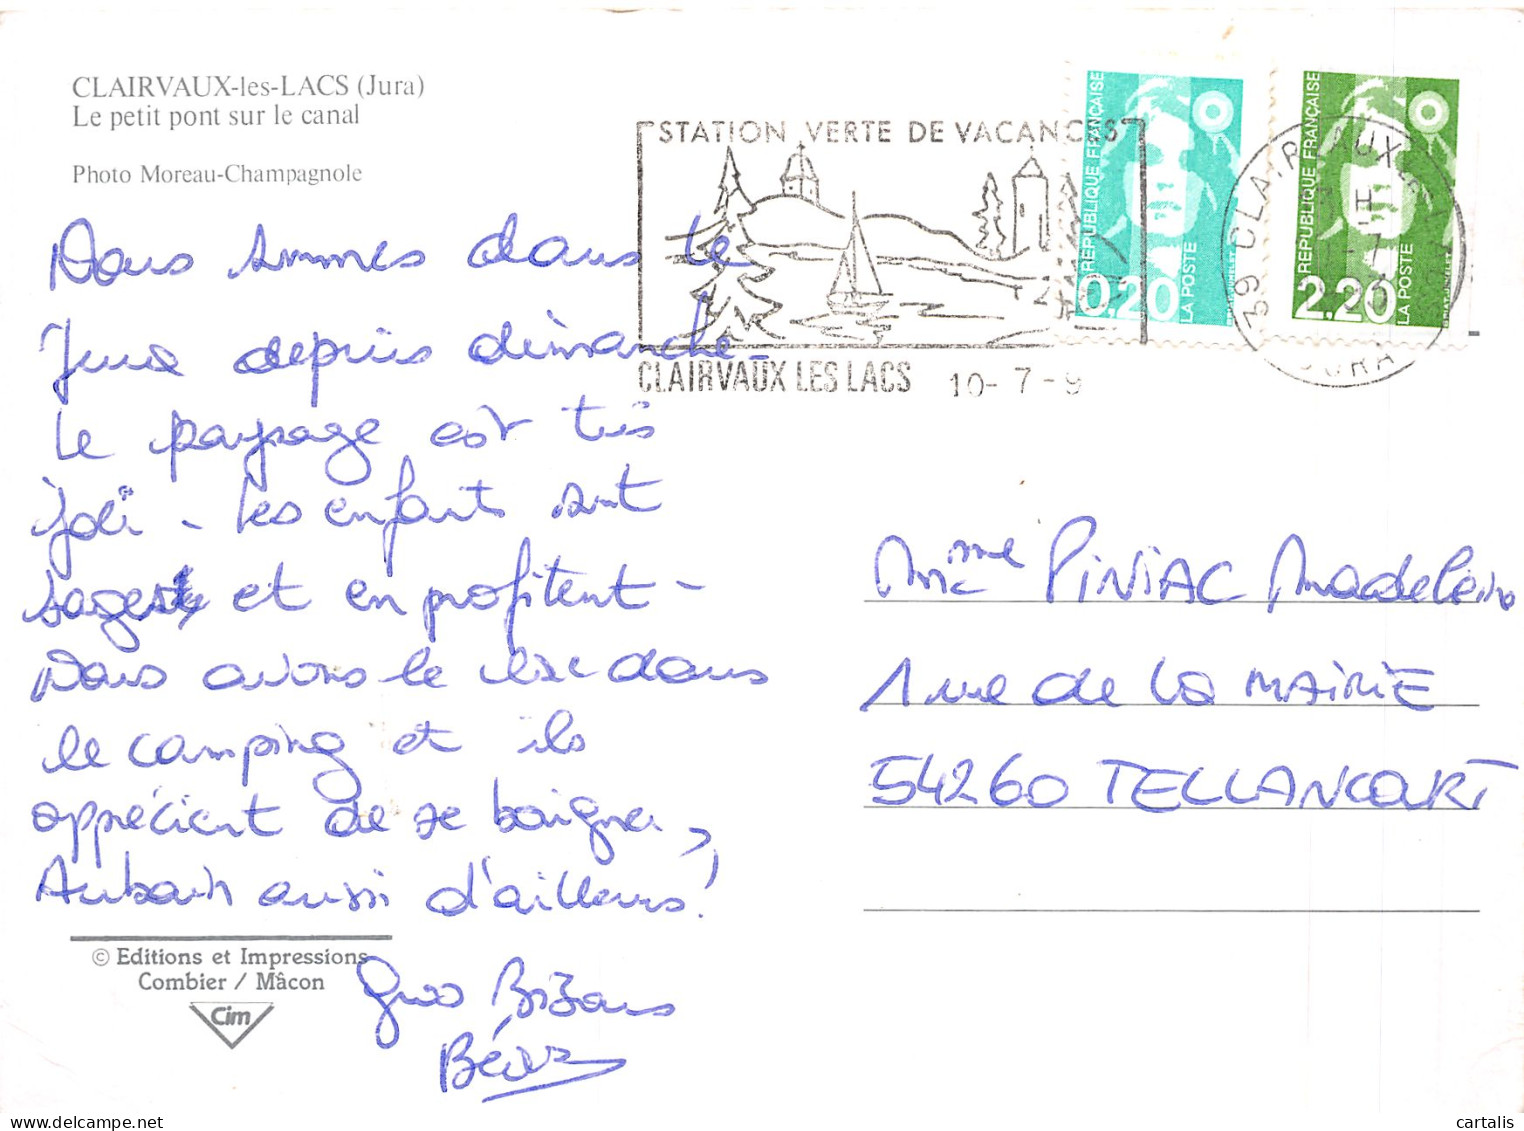 CLAIRVAUX-les-LACS (Jura)
Le petit pont sur le canal
Photo Moreau-Champagnole
STATION VERTE DE VACANCES
CLAIRVAUX LES LACS 10-7-9
RÉPUBLIQUE FRANÇAISE
0.20
LA POSTE
RÉPUBLIQUE FRANÇAISE
2.20
LA POSTE
39 CLAIRVAUX
JURA
Nous sommes dans le
Jura depuis dimanche -
Le paysage est très
joli - Les enfants sont
sages et en profitent -
Nous avons le lac dans
le camping et ils
apprécient de se baigner,
Aubain aussi d'ailleurs!
Gros Bizous
© Editions et Impressions
Combier / Mâcon
Cim
Mme PINIAC Madeleine
1 rue de la MAIRIE
54260 TELLANCOURT
cartalis